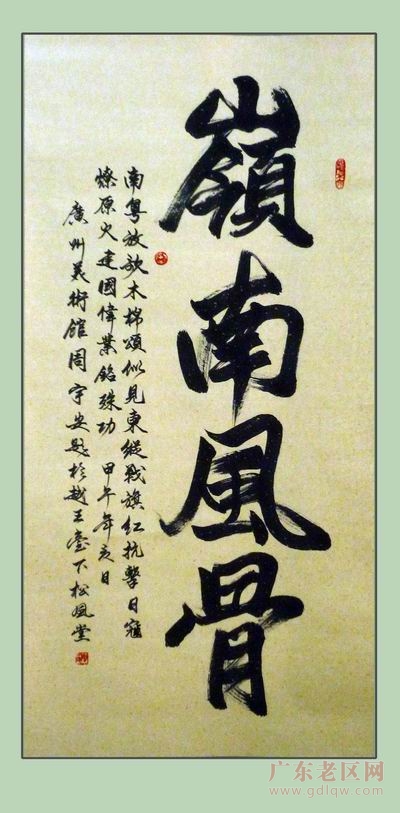 嶺南風骨
南粵放歌木棉頌似見東縱戰旗紅抗擊日寇
燎原火建國偉業銘殊功 甲午年亥日
廣州美術館周宇安題於越王臺下松風堂
广东老区网
www.gdlqw.com